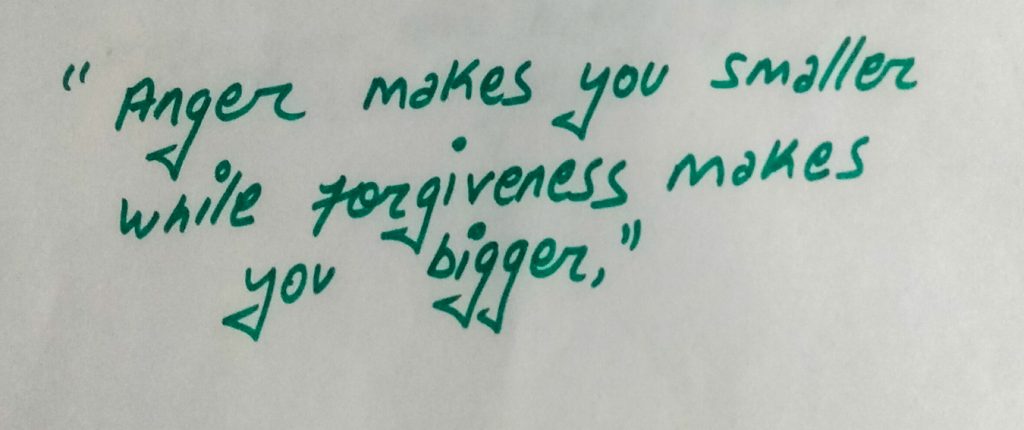 "Anger makes you smaller
while forgiveness makes
you bigger,"